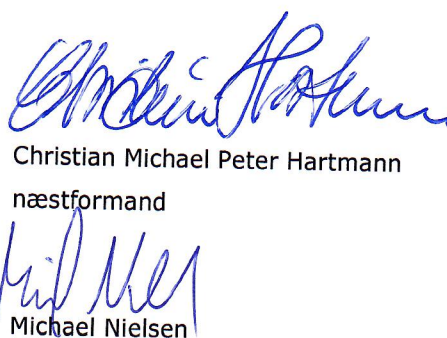 Christian Hartmann
Christian Michael Peter Hartmann
næstformand
Michael Nielsen